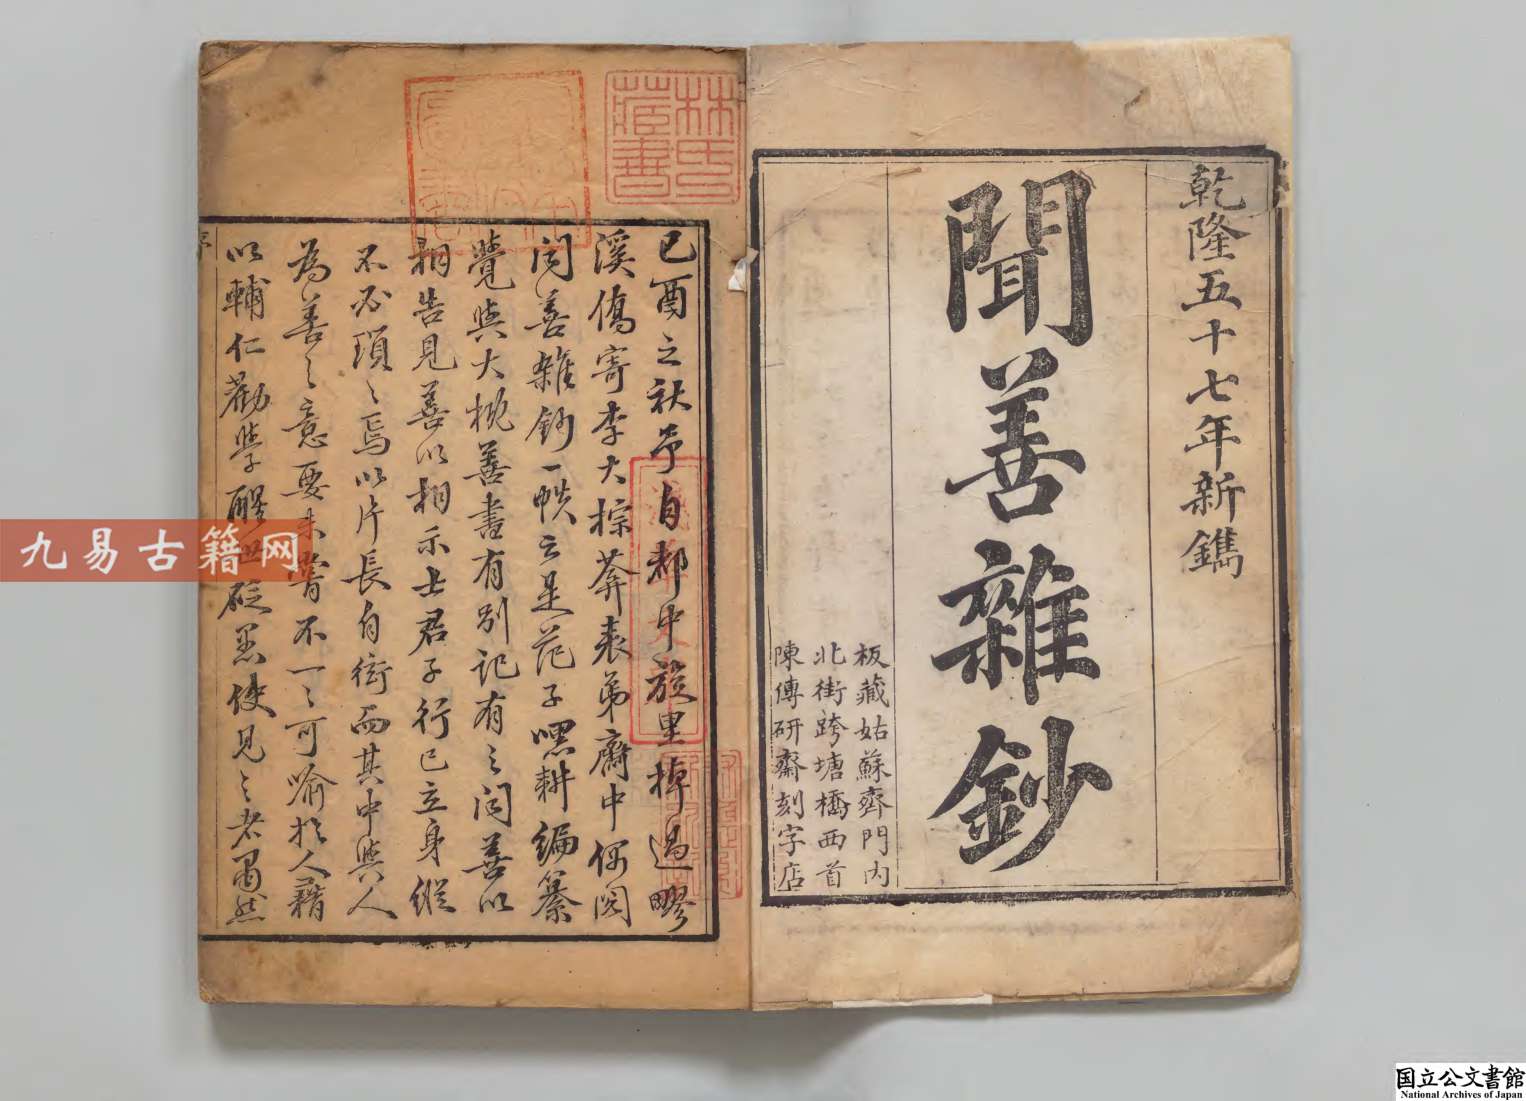 乾隆五十七年新鐫
聞善雜鈔
板藏姑蘇齊門內
北街跨塘橋西首
陳傳研齋刻字店
林氏藏書
己酉之秋予自都中旋里掉過
溪僑寄李大棕莽表弟齋中
聞善雜鈔一帙云是范子嘿耕編纂
覺與大
善書有別記有之聞善以
相告見善以相示士君子行己立身縱
不必瑣〻焉以片長自衒而其中與人
為善之意要未嘗不一一可喻於人藉
以輔仁勸學醒世砭惡使見之者
然
序
九易古籍网
国立公文書館
National Archives of Japan